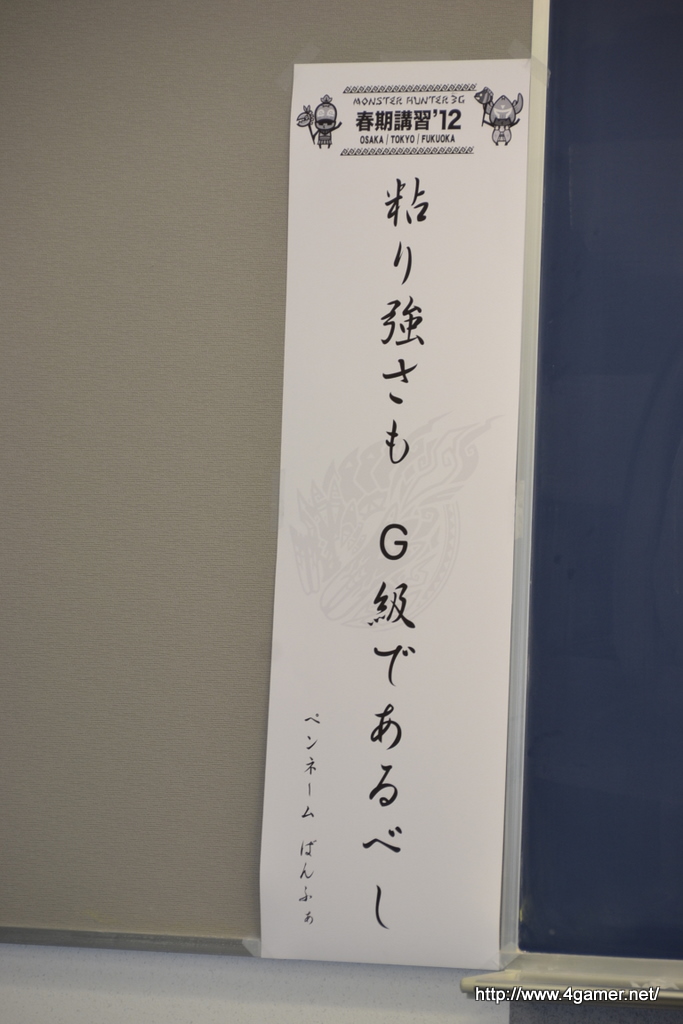 MONSTER HUNTER 3G
春期講習'12
OSAKA / TOKYO / FUKUOKA
粘り強さも G級であるべし
ペンネーム ばんふぁ
http://www.4gamer.net/